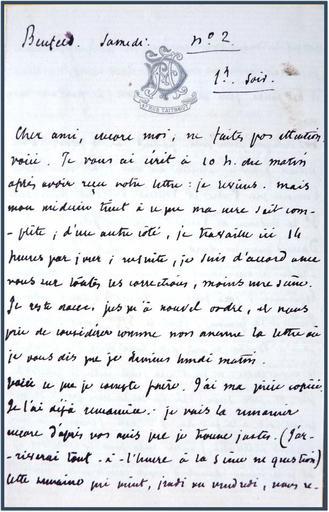 Samedi. nº 2.
1 h. soir.
Cher ami, encore moi, ne faites pas attention,
voici. Je vous ai écrit à 10 h. du matin
après avoir reçu votre lettre : je reviens. mais
mon médecin tient à ce que ma cure soit com-
plète ; d'une autre côté, je travaille ici 14
heures par jour ; ensuite, je suis d'accord avec
vous sur toutes les corrections, moins une scène.
Je reste donc, jusqu'à nouvel ordre, et vous
prie de considérer comme non avenue la lettre où
je vous dis que je reviens lundi matin.
Voici ce que je compte faire. J'ai ma pièce copiée
Je l'ai déjà remaniée. je vais la remanier
encore d'après vos avis que je trouve justes. (J'ar-
riverai tout-à-l'heure à la scène en question)
cette semaine qui vient, jeudi ou vendredi, vous re-